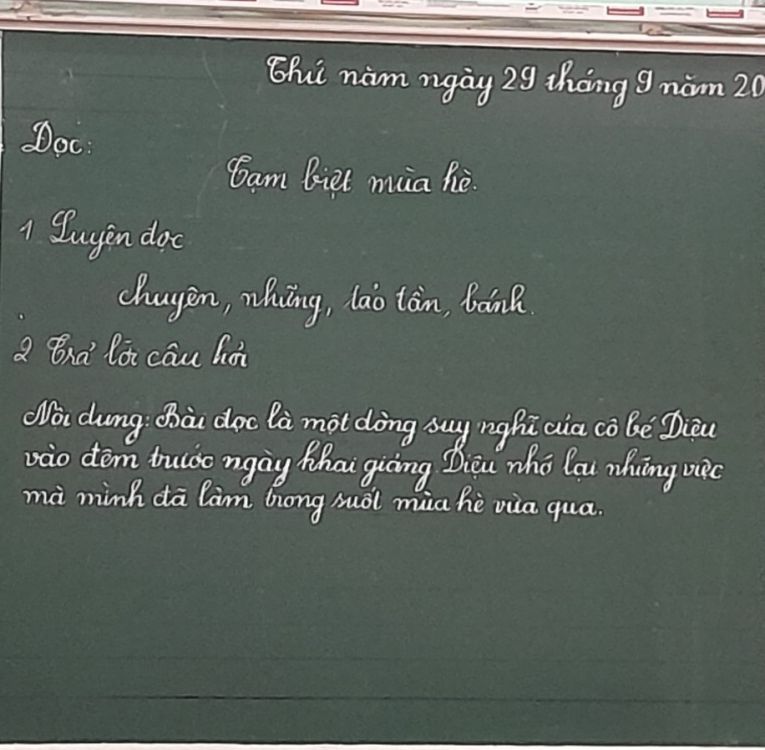 Thứ năm ngày 29 tháng 9 năm 20
Đọc:
Tạm biệt mùa hè.
1 Luyện đọc
chuyện, những, táo tợn, bánh.
2 Trả lời câu hỏi
Nội dung: Bài đọc là một dòng suy nghĩ của cô bé Diệu
vào đêm trước ngày khai giảng. Diệu nhớ lại những việc
mà mình đã làm trong suốt mùa hè vừa qua.